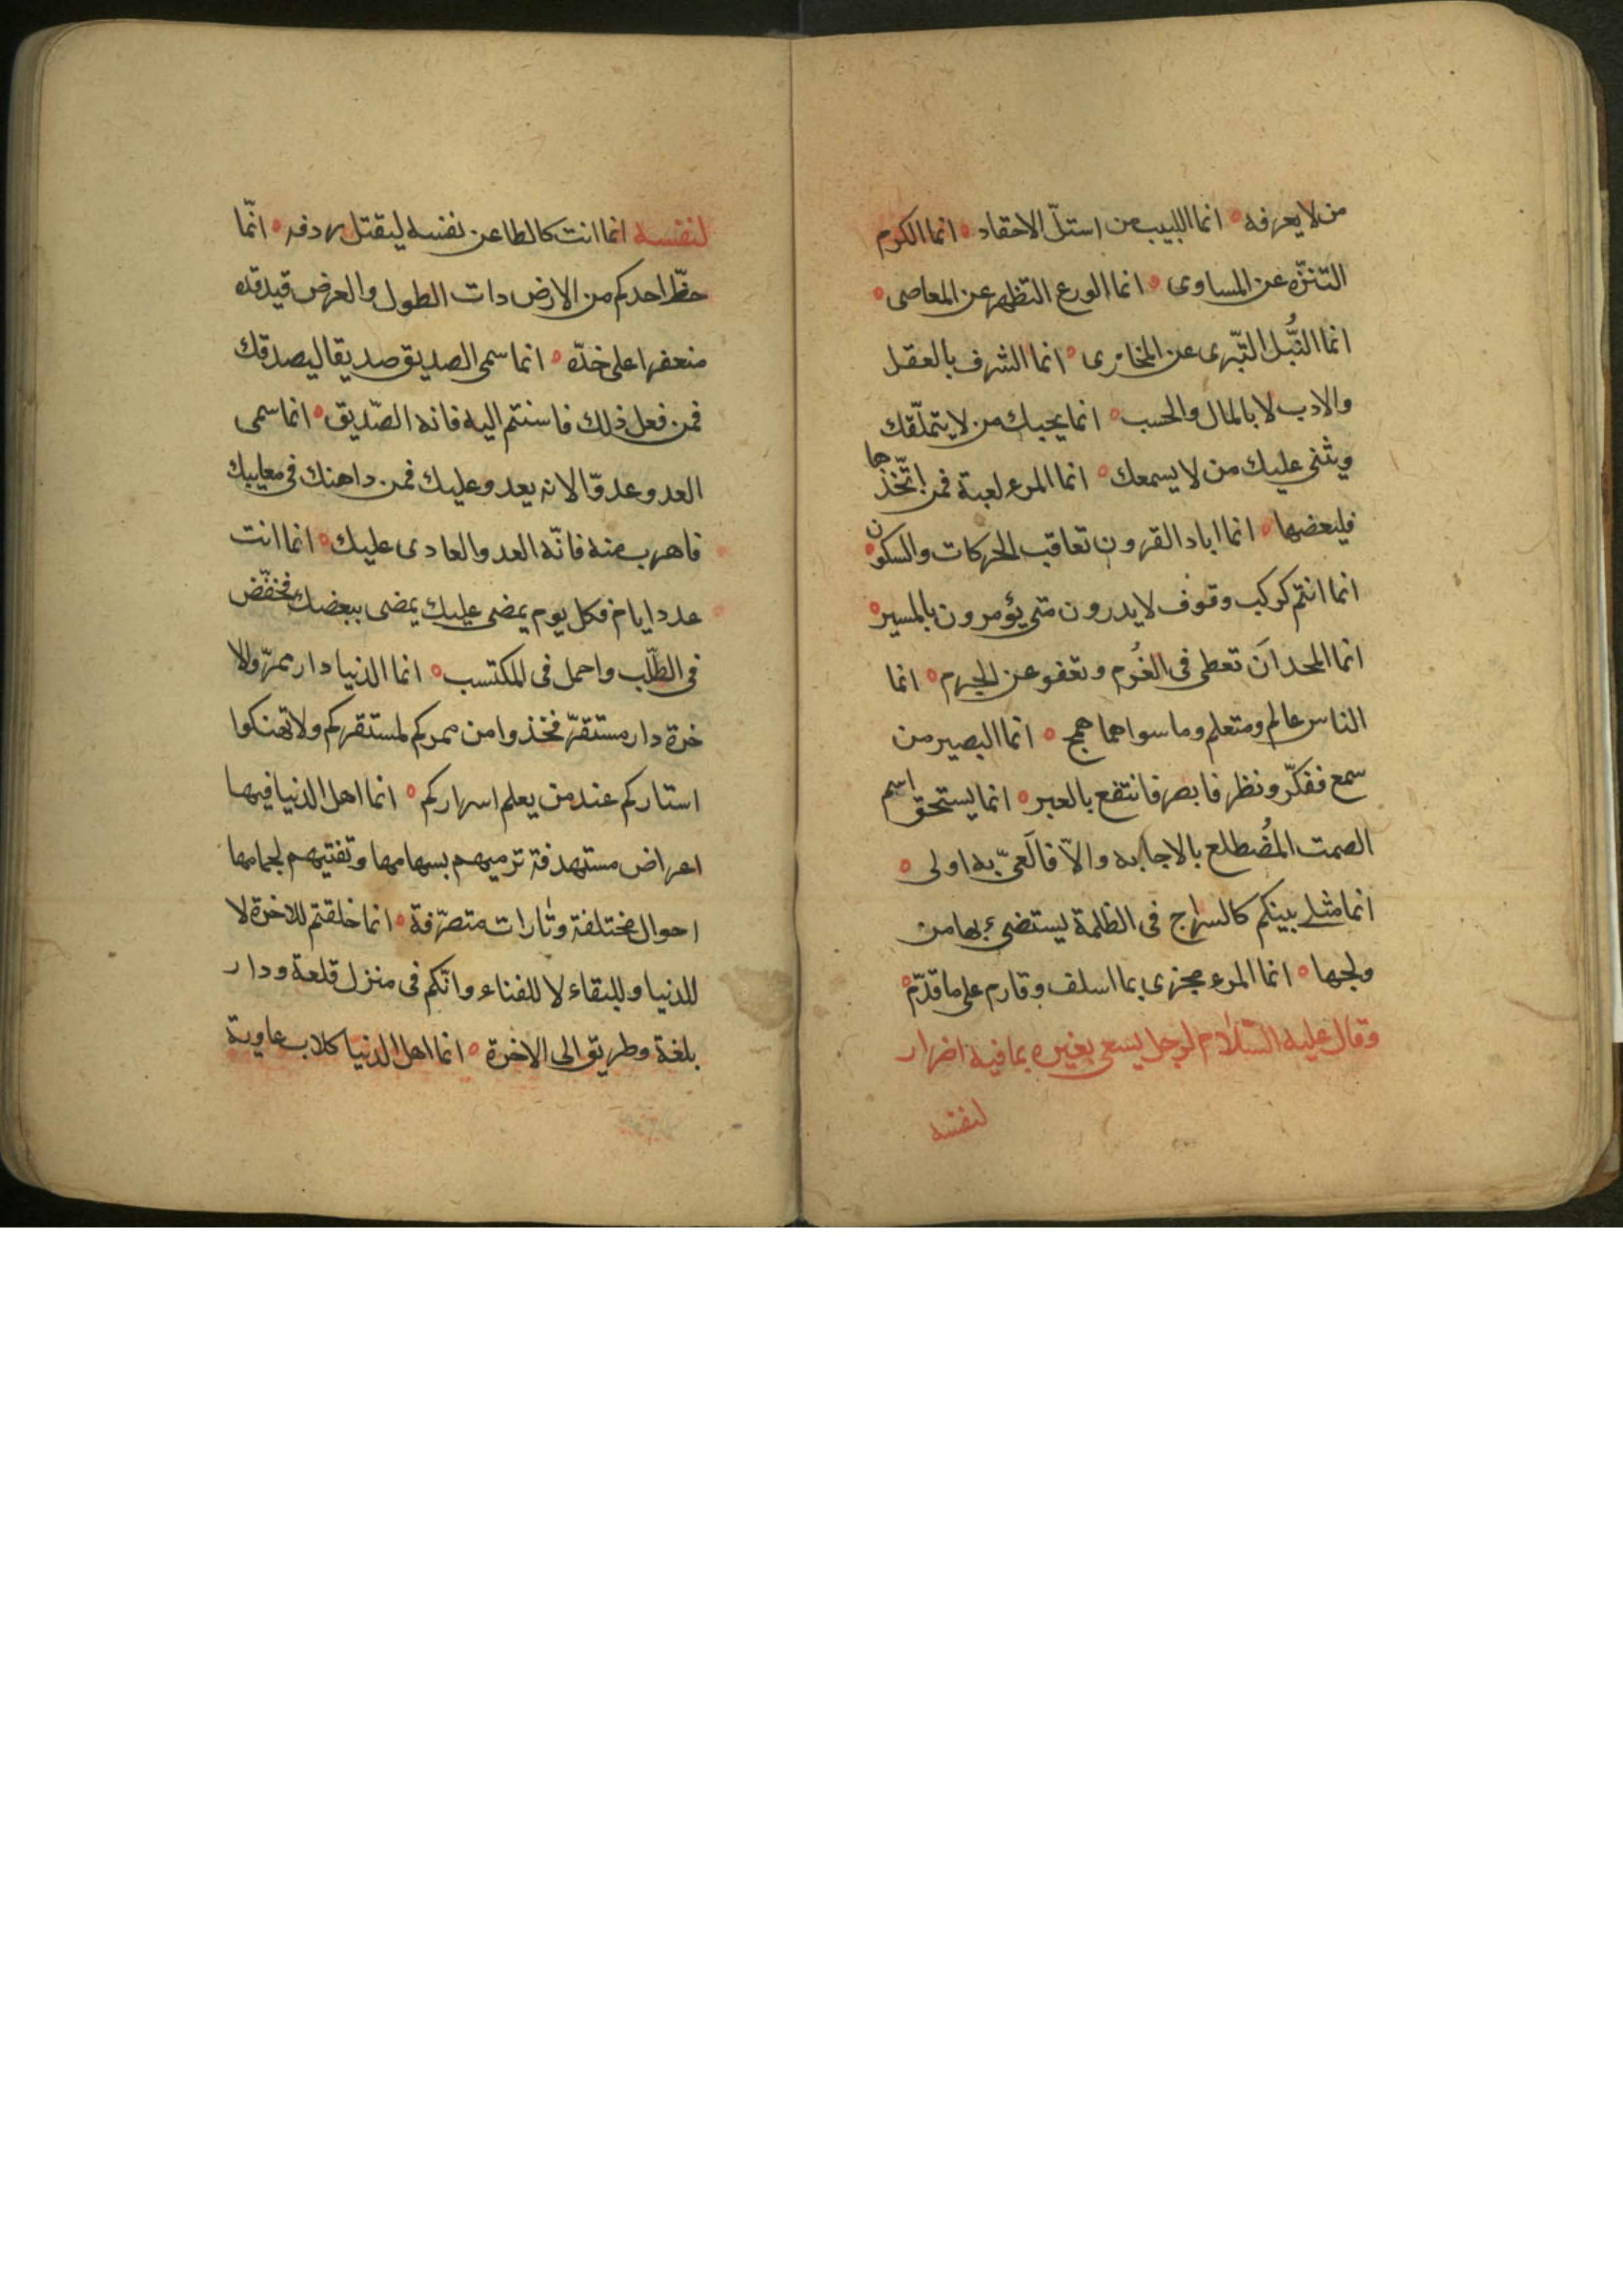 من لا يعرفه ۰ انما اللبيب من استلّ الاحقاد ۰ انما الكرم
التنزّه عن المساوى ۰ انما الورع التظهر عن المعاصى ۰
انما النُّبل التّبرى عن المخازى ۰ انما الشرف بالعقل
والادب لا بالمال والحسب ۰ انما يحبك من لا يتملّقك
ويثنى عليك من لا يسمعك ۰ انما المرء لعبة فمن اتّخذها
فليعضها ۰ انما اباد القرون تعاقب الحركات والسكون ۰
انما انتم كركب وقوف لا يدرون متى يؤمرون بالمسير ۰
انما المجد ان تعطى فى الغُرم وتعفو عن الجرم ۰ انما
الناس عالم ومتعلم وما سواهما همج ۰ انما البصير من
سمع ففكّر ونظر فابصر فانتفع بالعبر ۰ انما يستحق اسم
الصمت المُضطلع بالاجابه والّا فالعىّ به اولى ۰
انما مثلى بينكم كالسراج فى الظلمة يستضىء بها من
ولجها ۰ انما المرء مجزى بما اسلف وقادم على ما قدّم ۰
وقال عليه السّلام لرجل يسعى بغيره بما فيه اضرار
لنفسه
لنفسه انما انت كالطاعن نفسه ليقتل ردفه ۰ انّما
حظّ احدكم من الارض دات الطول والعرض قيد قده
منعفرا على خدّه ۰ انما سمى الصديق صديقا ليصدقك
فمن فعل ذلك فاستنم اليه فانه الصّديق ۰ انما سمى
العدو عدوّا لانه يعدو عليك فمن داهنك فى معايبك
فاهرب منه فانّه العدو العادى عليك ۰ انما انت
عدد ايام فكل يوم يمضى عليك يمضى ببعضك فخفّض
فى الطّلب واجمل فى المكتسب ۰ انما الدنيا دار ممرّ والا
خرة دار مستقرّ فخذوا من ممركم لمستقركم ولا تهتكوا
استاركم عند من يعلم اسراركم ۰ انما اهل الدنيا فيها
اعراض مستهدفة ترميهم بسهامها وتفنيهم لجمامها
احوال مختلفة وتارات متصرّفة ۰ انما خلقتم للاخرة لا
للدنيا وللبقاء لا للفناء وانّكم فى منزل قلعة ودار
بلغة وطريق الى الاخرة ۰ انما اهل الدنيا كلاب عاوية